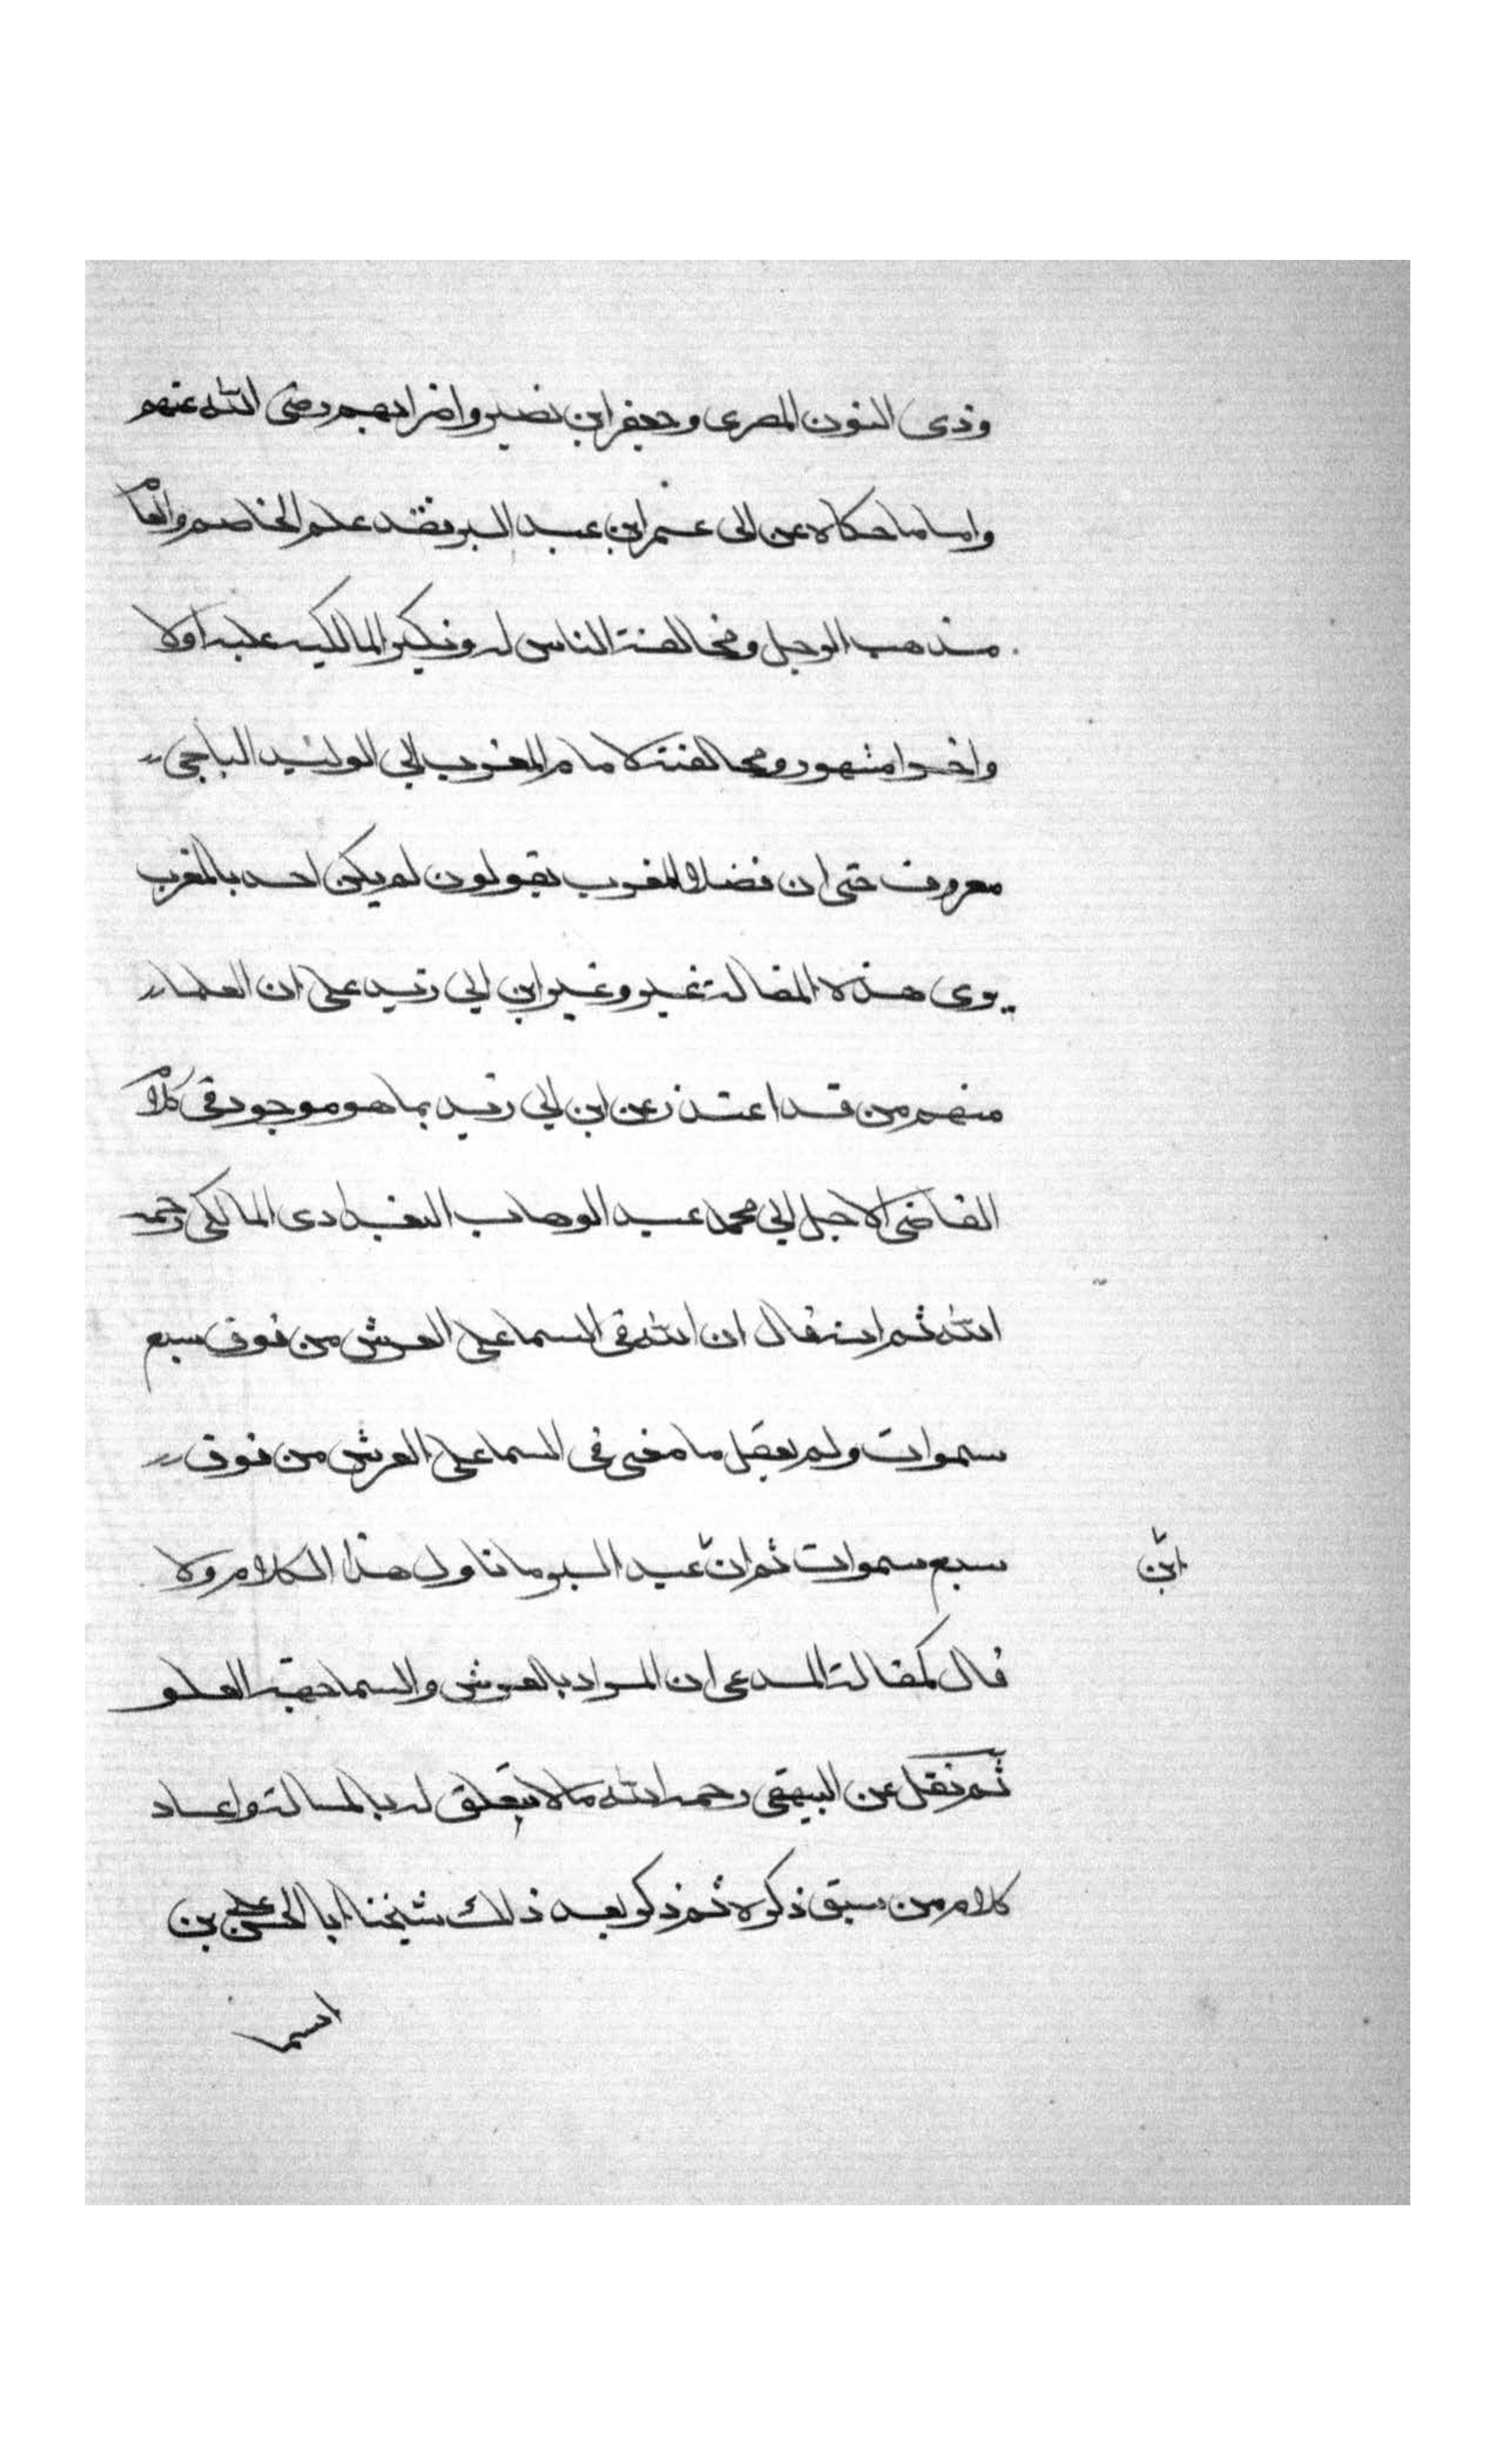 وذى النون المصرى وجعفر ابن نصير واضرابهم رضى الله عنهم
واما ما حكاه عن ابى عمر ابن عبد البر فقد علم الخاص والعام
مذهب الرجل ومخالفة الناس له ونكير المالكيه عليه اولا
واخرا مشهور ومخالفته لامام المغرب ابى الوليد الباجى
معروف حتى ان فضلا المغرب يقولون لم يكن احد بالمغرب
يرى هذه المقالة غيره وغير ابن ابى زيد على ان العلما
منهم من قد اعتذر عن ابن ابى زيد بما هو موجود فى كلام
القاضى الاجل ابى محمد عبد الوهاب البغدادى المالكى رحمه
الله ثم انه قال ان الله فى السما على العرش من فوق سبع
سموات ولم يعقل ما معنى فى السما على العرش من فوق
سبع سموات ثم ان عبد البر ما تاول هذا الكلام ولا
ابن
قال كمقالة المدعى ان المراد بالعرش والسما جهة العلو
ثم نقل عن البيهقى رحمه الله ما لا يتعلق له بالمسالة واعاد
كلام من سبق ذكره ثم ذكر بعد ذلك شيخنا ابا الحسن على بن
اسما